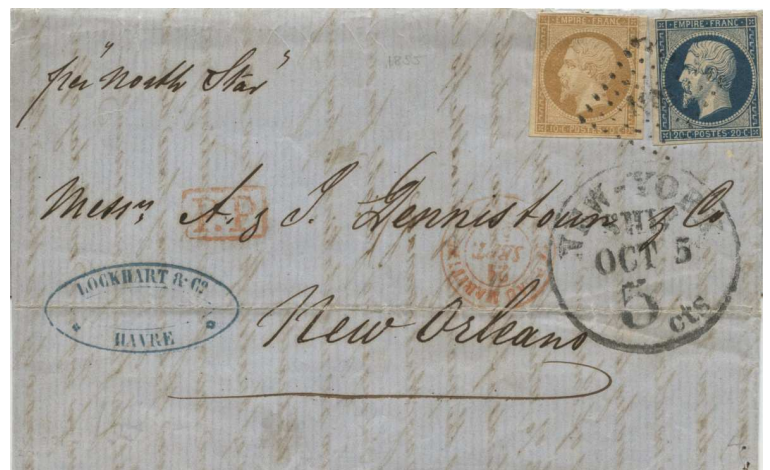 EMPIRE FRANC.
10.C.POSTES.10.C.
EMPIRE FRANC.
20.C.POSTES.20.C.
per "North Star"
Messrs A. & J. Dennistoun & Co
P.P.
NEW-YORK
SHIP
OCT 5
5
cts
24
SEPT.
LOCKHART & Co
HAVRE
New Orleans